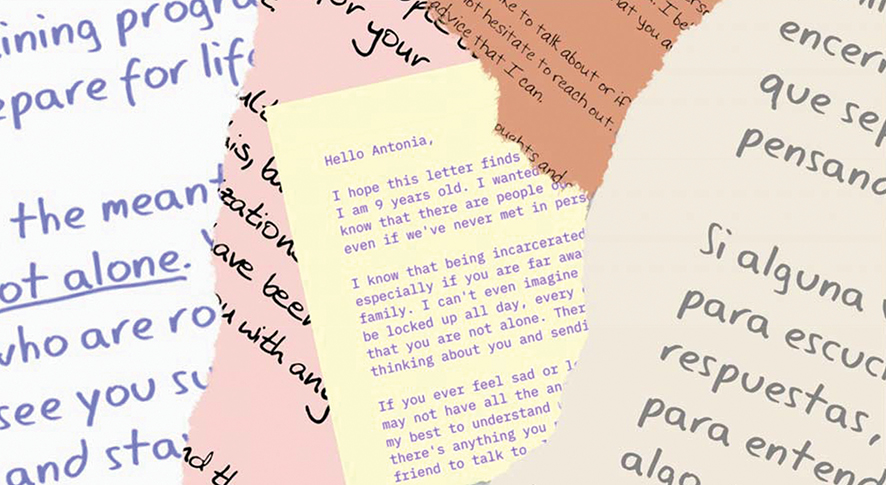 ining
epare for life
the meant
ot alone.
who are
see you
and
for your
his,
have been
with any
nd th
ke to talk about or if
not hesitate to reach out.
advice that I can.
oughts and
Hello Antonia,
I hope this letter finds
I am 9 years old. I wanted
know that there are people
even if we've never met in pers
I know that being incarcerated
especially if you are far awa
family. I can't even imagine
be locked up all day, every
that you are not alone. Ther
thinking about you and sendi
If you ever feel sad or lo
may not have all the an
my best to understand
there's anything you
friend to talk to
encerr
que sep
pensand
Si alguna
para escuc
respuestas,
para entend
algo